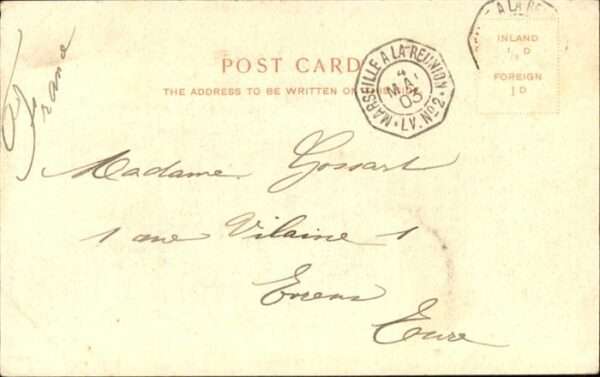 France
POST CARD
THE ADDRESS TO BE WRITTEN ON
MARSEILLE A LA REUNION
4
MAI
03
LV. No 2
A LA RE
INLAND
½ D
FOREIGN
1D
Madame Gossart
1 rue Vilaine 1
Evreux
Eure